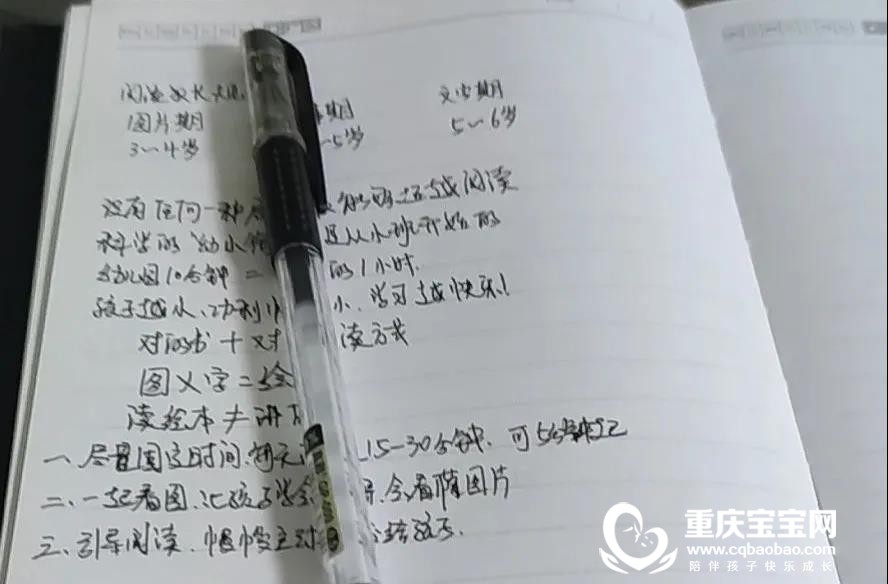 阅读成长
图片期 期 文字期
3～4岁 ～5岁 5～6岁
没有任何一种 能够超越阅读
科学的"幼小 是从小班开始的
幼儿园10分钟 = 的1小时.
孩子越小、功利 小、学习越快乐!
对的书 + 对 读方式
图 X 字 = 绘
读绘本 ≠ 讲
一、尽量固定时间.每天 15-30分钟.可
二、一起看图.让孩子学会 会看懂图片
三、引导阅读.
重庆宝宝网
www.cqbaobao.com
陪伴孩子快乐成长